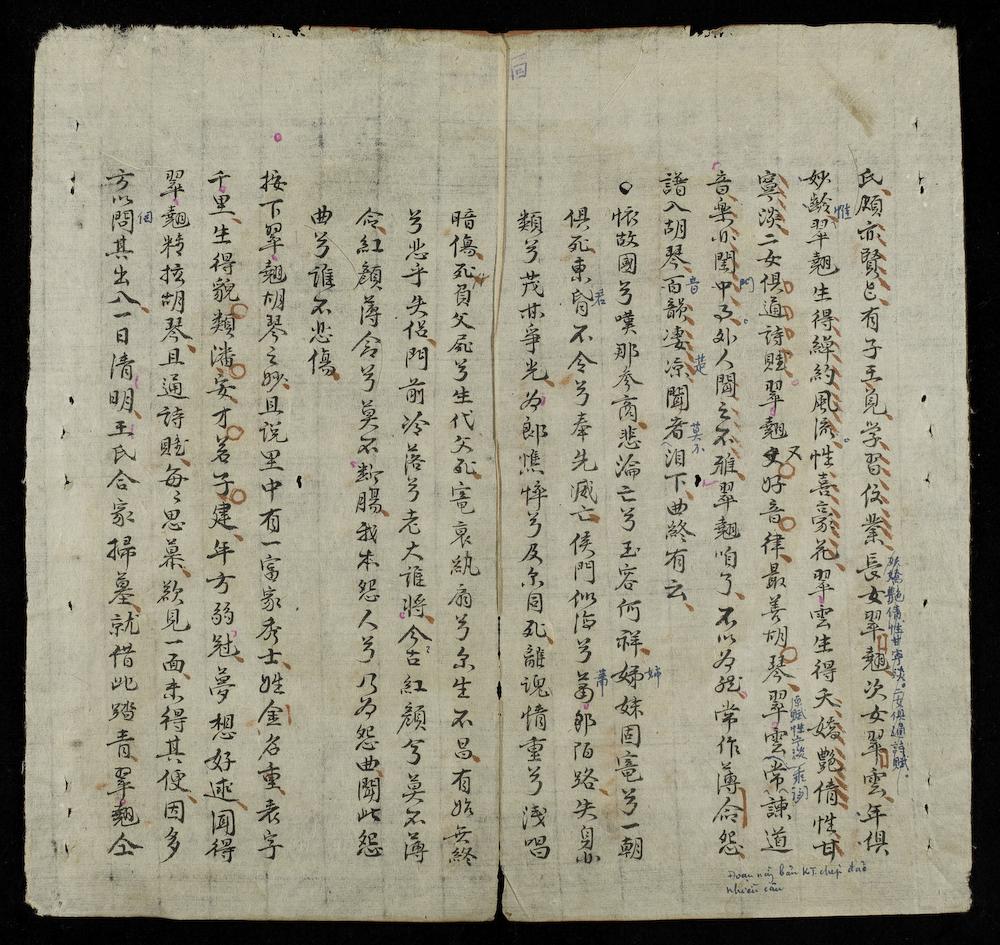 氏頗亦賢已有子王覓学習仅業長女翠翹次女翠雲年俱
妙齡翠翹生得綽約風流性喜豪花翠雲生得夭嬌艷倩性甘
寧淡二女俱通詩賦翠翹又好音律最善胡琴翠雲常諫道
音樂非閨中事外人聞之不雅翠翹咱了不以為然常作薄命怨
譜入胡琴音韻凄凉聞者泪下曲終有云
懷故國兮嘆那參商悲淪亡兮玉容何祥姊妹固寵兮一朝
俱死東昏不令兮奉先滅亡侯門似海兮蕭郎陌路失身
類兮茂甘爭光为郎憔悴兮及尔同死離魂情重兮淺唱
暗傷死負父屍兮生代父死寵衰紈扇兮尔生不昌有始無終
兮悲乎失侶門前冷落兮老大誰將今古紅顔兮莫不薄
命紅顔薄命兮莫不断腸我本怨人兮乃為怨曲聞此怨
曲兮誰不悲傷
按下翠翹胡琴之妙且说里中有一富家秀士姓金名重表字
千里生得貌類潘安才若子建年方弱冠夢想好逑闻得
翠翹精拉胡琴且通詩賦每々思慕欲見一面未得其便因多
方以問其出入一日清明王氏合家掃墓就借此踏青翠翹仝
惟
門
音
楚
莫不
君
姊
蕭
個
四
Đoạn này bản KT. chép đảo
nhiều câu